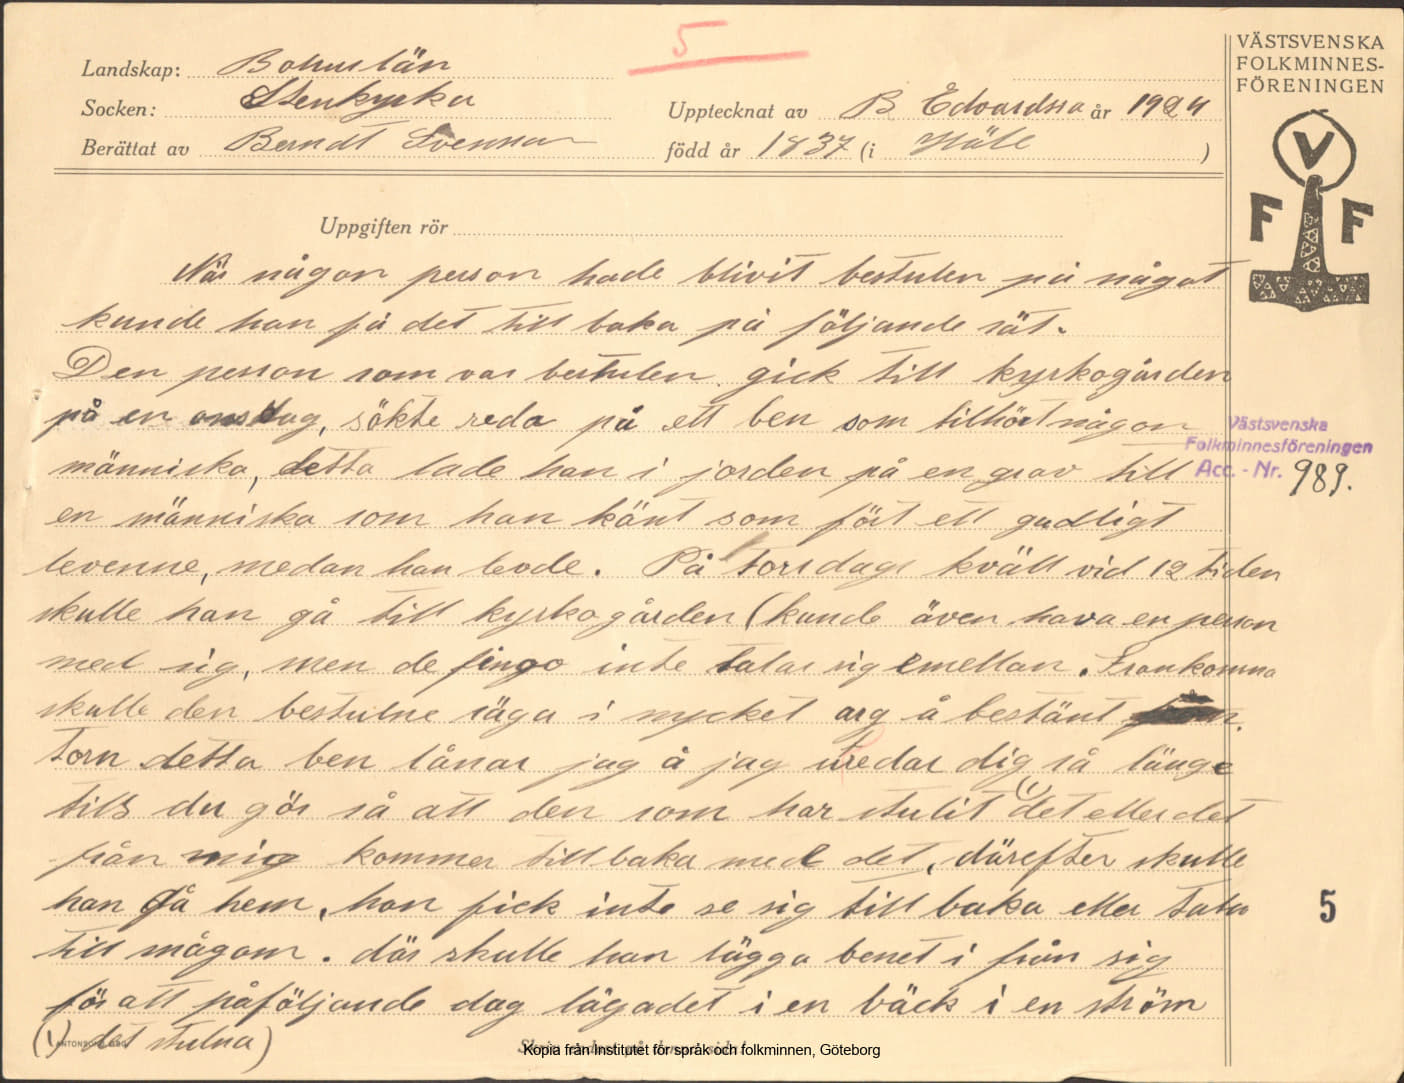 5
Landskap: Bohuslän
Socken: Stenkyrka
Upptecknat av B Edvardssa år 1924
Berättat av Berndt Svensson född år 1837 (i Häll )
VÄSTSVENSKA
FOLKMINNES-
FÖRENINGEN
V
F F
Uppgiften rör
När någon person hade blivit bestulen på något
kunde han få det till baka på följande sät.
Den person som var bestulen gick till kyrkogården
på en onsdag, sökte reda på ett ben som tillhört någon
människa, detta lade han i jorden på en grav till
en människa som han känt som fört ett gudligt
levenne, medan han levde. På torsdags kväll vid 12 tiden
skulle han gå till kyrkogården (kunde även hava en person
med sig, men de fingo inte talas sig emellan. Framkomna
skulle den bestulne säga i mycket arg å bestänt
torn detta ben lånar jag å jag uredar dig så länge
tills du gör så att den som har stulit (1) det eller det
från mig kommer till baka med det, därefter skulle
han gå hem, han fick inte se sig till baka eller tala
till mågom. där skulle han lägga benet i från sig
för att påföljande dag läga det i en bäck i en ström
(1) det stulna)
ANTONSONS, GBG.
Västsvenska
Folkminnesföreningen
Acc. - Nr. 989.
5
Kopia från Institutet för språk och folkminnen, Göteborg